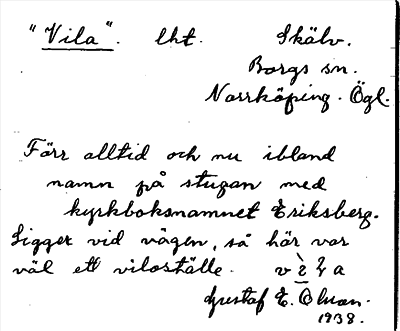 "Vila". lht. Skälv.
Borgs sn.
Norrköping. Ögl.
Förr alltid och nu ibland
namn på stugan med
kyrkboksnamnet Eriksberg.
Ligger vid vägen, så här var
väl ett viloställe.
Gustaf E. Olman.
1938.